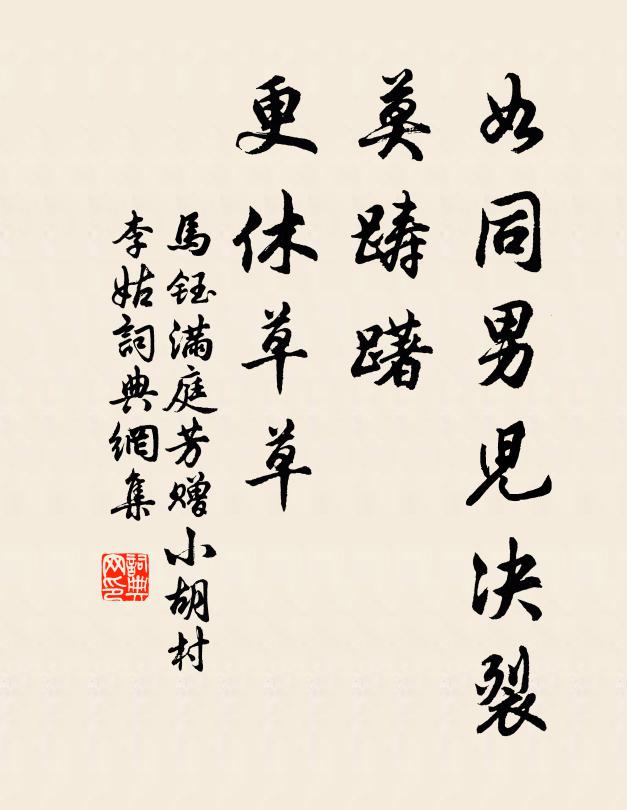 如同男児決裂
莫踌躇
更休草草
馬鈺滿庭芳赠小胡村
李姑詞典網集
詞典网印